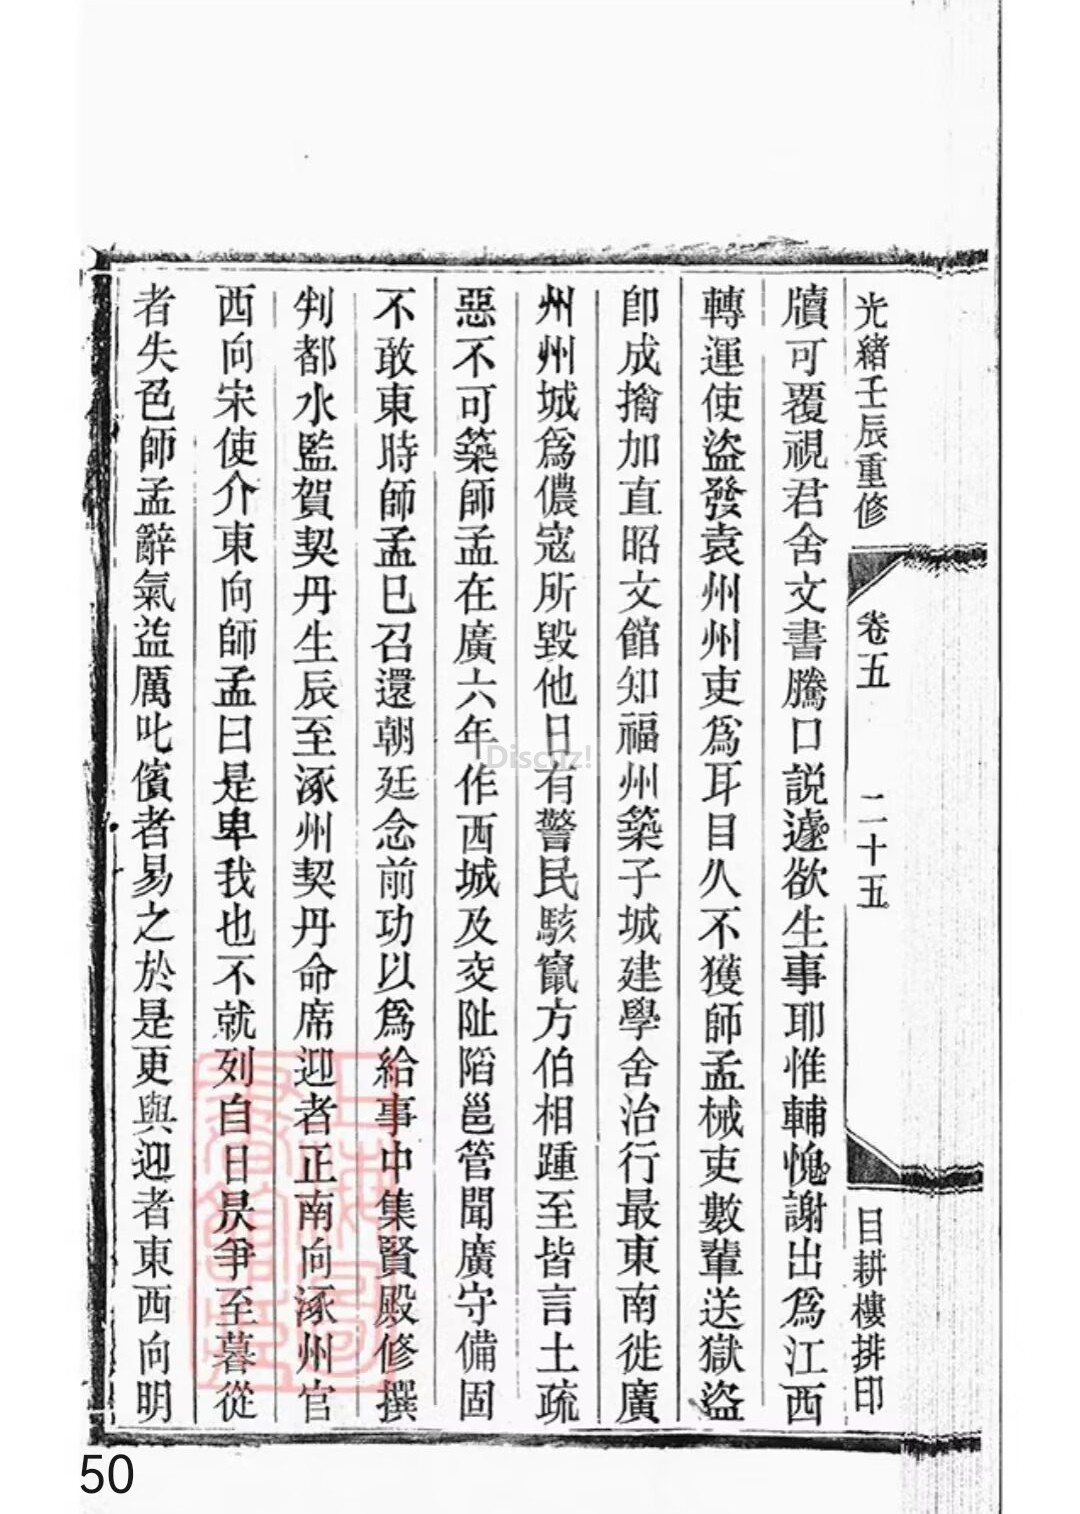 光緒壬辰重修 卷五 二十五 目耕樓排印
牘可覆視君舍文書騰口説遽欲生事耶惟輔愧謝出爲江西
轉運使盜發袁州州吏爲耳目久不獲師孟械吏數輩送獄盜
卽成擒加直昭文館知福州築子城建學舍治行最東南徙廣
州州城爲儂寇所毀他日有警民駭竄方伯相踵至皆言土疏
惡不可築師孟在廣六年作西城及交阯陷邕管聞廣守備固
不敢東時師孟巳召還朝廷念前功以爲給事中集賢殿修撰
判都水監賀契丹生辰至涿州契丹命席迎者正南向涿州官
西向宋使介東向師孟曰是卑我也不就列自日昃爭至暮從
者失色師孟辭氣益厲叱儐者易之於是更與迎者東西向明
Discuz!
50